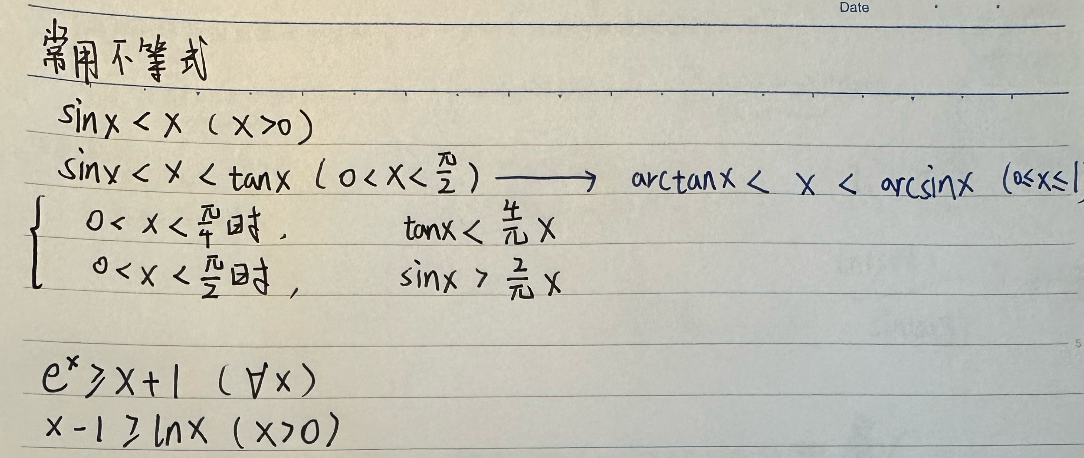 Date
常用不等式
sinx < x (x>0)
sinx < x < tanx (0<x<π/2) ⟶ arctanx < x < arcsinx (0≤x≤1)
{ 0< x < π/4 时, tanx < 4/π x
0<x < π/2 时, sinx > 2/π x
eˣ ≥ x+1 (∀x)
x-1 ≥ lnx (x>0)
5